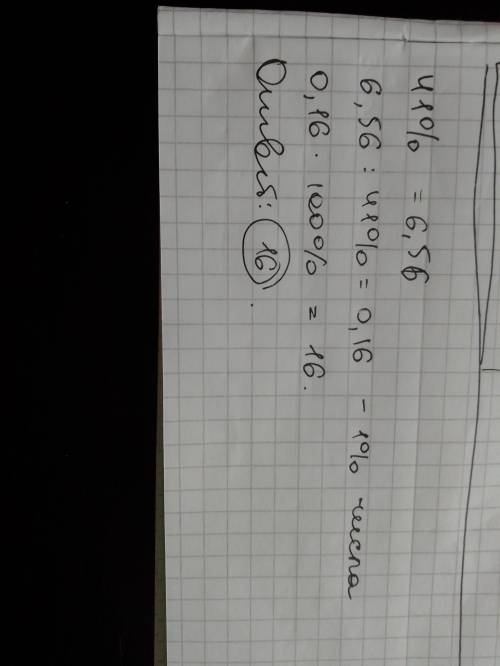 41% = 6,56
6,56 : 41% = 0,16 - 1% числа
0,16 · 100% = 16.
Ответ: 16.